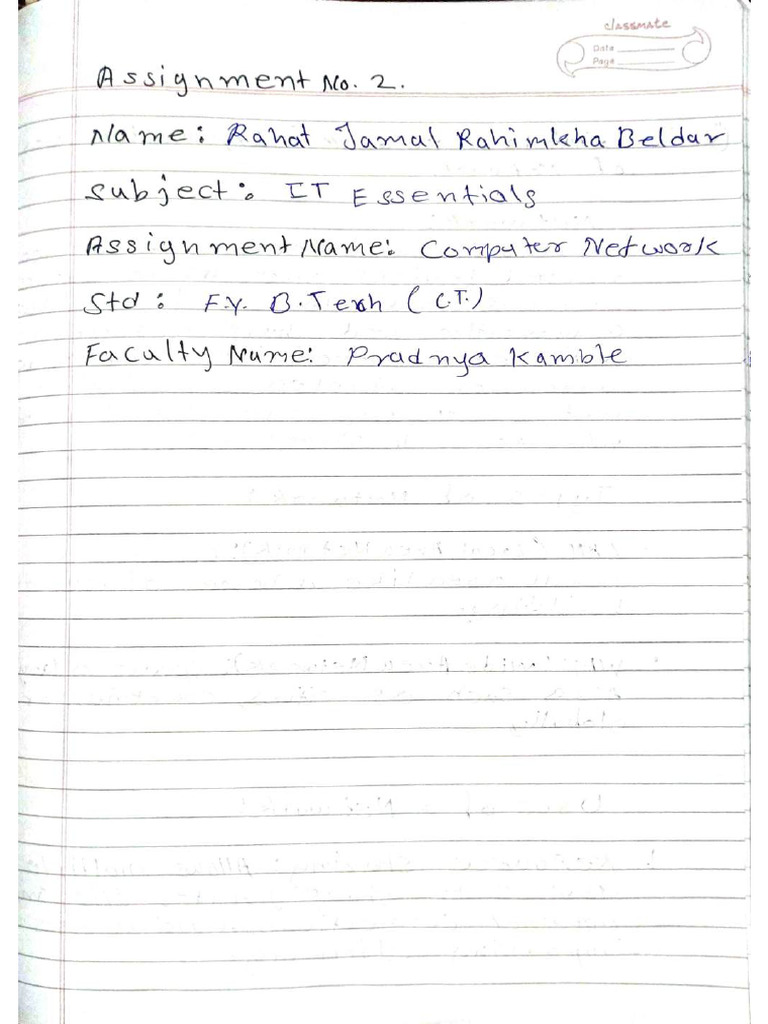 classmate
Date
Page
Assignment No. 2.
Name: Rahat Jamal Rahimkha Beldar
Subject: IT Essentials
Assignment Name: Computer Network
Std: F.Y. B.Tech (C.T.)
Faculty Name: Pradnya Kamble